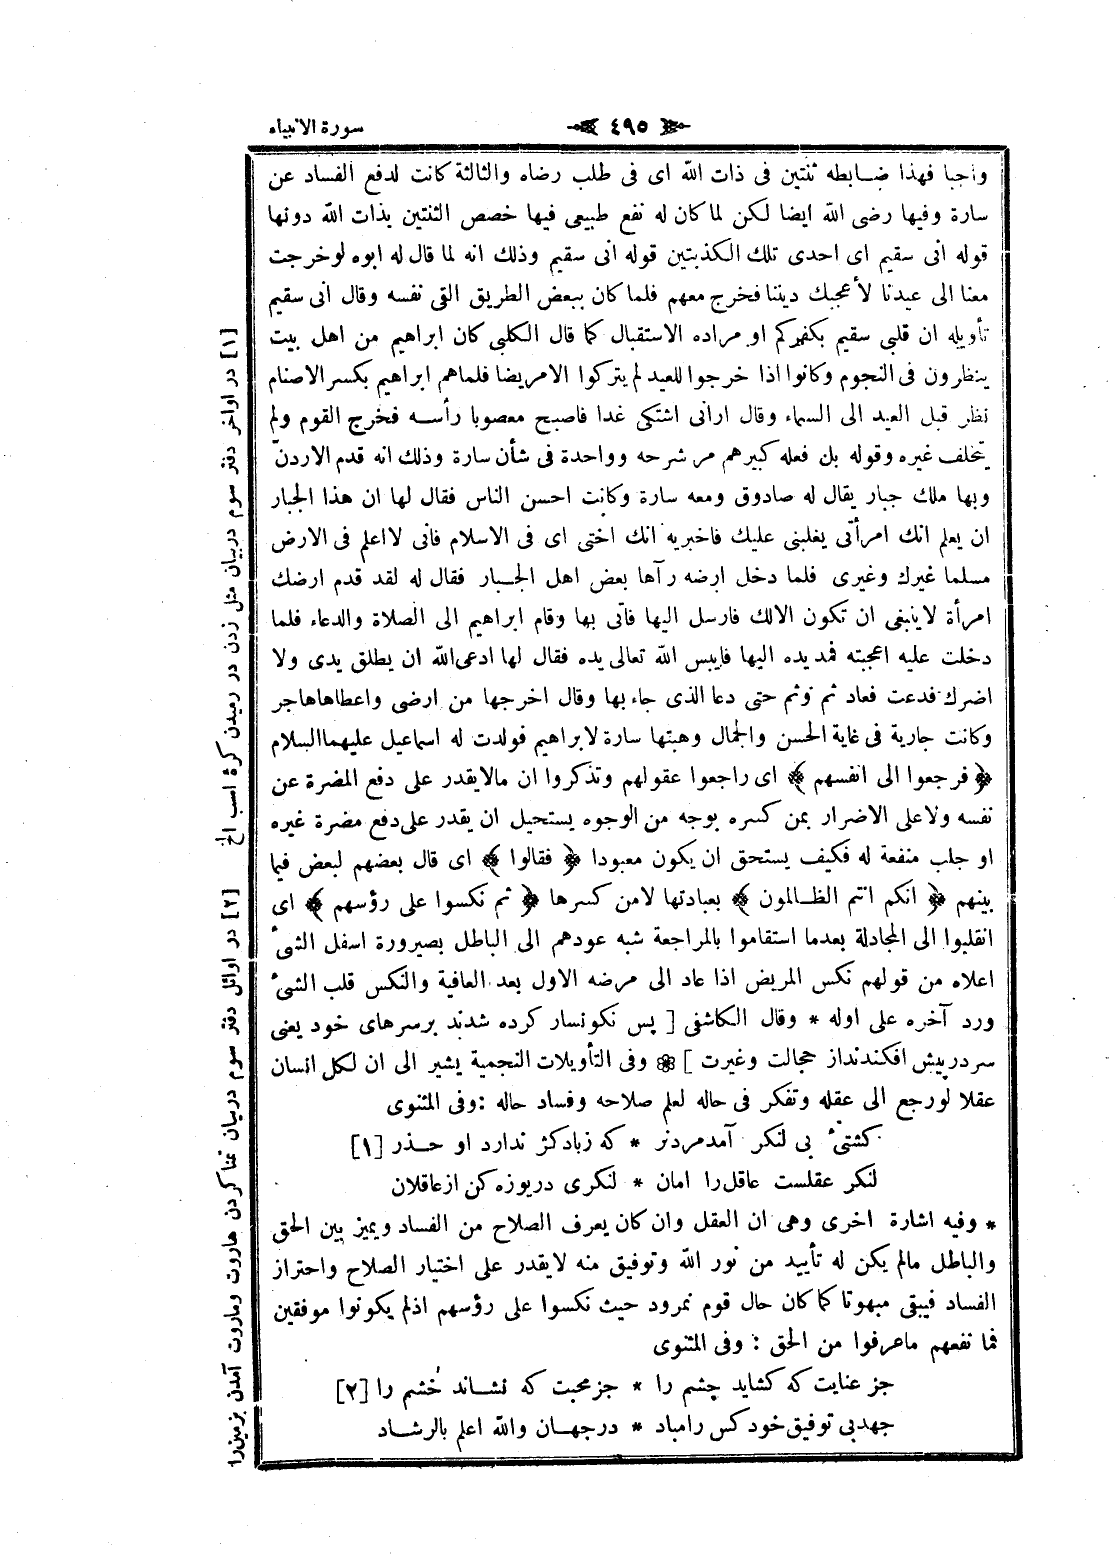 سورة الانبياء
٤٩٥
واجبا فهذا ضابطه ثنتين فى ذات الله اى فى طلب رضاه والثالثة كانت لدفع الفساد عن
سارة وفيها رضى الله ايضا لكن لما كان له نفع طبيعى فيها خصص الثنتين بذات الله دونها
قوله انى سقيم اى احدى تلك الكذبتين قوله انى سقيم وذلك انه لما قال له ابوه لوخرجت
معنا الى عيدنا لأعجبك ديننا فخرج معهم فلما كان ببعض الطريق القى نفسه وقال انى سقيم
تأويله ان قلبى سقيم بكفركم او مراده الاستقبال كما قال الكلبى كان ابراهيم من اهل بيت
ينظرون فى النجوم وكانوا اذا خرجوا للعيد لم يتركوا الامريضا فلماهم ابراهيم بكسر الاصنام
نظر قبل العيد الى السماء وقال ارانى اشتكى غدا فاصبح معصوبا رأسه فخرج القوم ولم
يتخلف غيره وقوله بل فعله كبيرهم مر شرحه وواحدة فى شأن سارة وذلك انه قدم الاردنّ
وبها ملك جبار يقال له صادوق ومعه سارة وكانت احسن الناس فقال لها ان هذا الجبار
ان يعلم انك امرأتى يغلبنى عليك فاخبريه انك اختى اى فى الاسلام فانى لااعلم فى الارض
مسلما غيرك وغيرى فلما دخل ارضه رآها بعض اهل الجبار فقال له لقد قدم ارضك
امرأة لاينبغى ان تكون الالك فارسل اليها فاتى بها وقام ابراهيم الى الصلاة والدعاء فلما
دخلت عليه اعجبته فمد يده اليها فايبس الله تعالى يده فقال لها ادعى الله ان يطلق يدى ولا
اضرك فدعت فعاد ثم وثم حتى دعا الذى جاء بها وقال اخرجها من ارضى واعطاهاهاجر
وكانت جارية فى غاية الحسن والجمال وهبتها سارة لابراهيم فولدت له اسماعيل عليهما السلام
﴿ فرجعوا الى انفسهم ﴾ اى راجعوا عقولهم وتذكروا ان مالايقدر على دفع المضرة عن
نفسه ولاعلى الاضرار بمن كسره بوجه من الوجوه يستحيل ان يقدر على دفع مضرة غيره
او جلب منفعة له فكيف يستحق ان يكون معبودا ﴿ فقالوا ﴾ اى قال بعضهم لبعض فيما
بينهم ﴿ انكم انتم الظالمون ﴾ بعبادتها لامن كسرها ﴿ ثم نكسوا على رؤسهم ﴾ اى
انقلبوا الى المجادلة بعدما استقاموا بالمراجعة شبه عودهم الى الباطل بصيرورة اسفل الشىء
اعلاه من قولهم نكس المريض اذا عاد الى مرضه الاول بعد العافية والنكس قلب الشىء
ورد آخره على اوله * وقال الكاشفى [ پس نكونسار كرده شدند برسرهاى خود يعنى
سردرپيش افكندنداز خجالت وغيرت ] ❀ وفى التأويلات النجمية يشير الى ان لكل انسان
عقلا لورجع الى عقله وتفكر فى حاله لعلم صلاحه وفساد حاله :وفى المثنوى
كشتىء بى لنكر آمدمردشر * كه زبادكژ ندارد او حذر [١]
لنكر عقلست عاقل را امان * لنكرى دريوزه كن ازعاقلان
* وفيه اشارة اخرى وهى ان العقل وان كان يعرف الصلاح من الفساد ويميز بين الحق
والباطل مالم يكن له تأييد من نور الله وتوفيق منه لايقدر على اختيار الصلاح واحتراز
الفساد فيبقى مبهوتا كما كان حال قوم نمرود حيث نكسوا على رؤسهم اذلم يكونوا موفقين
فما نفعهم ماعرفوا من الحق : وفى المثنوى
جز عنايت كه كشايد چشم را * جزمحبت كه نشاند خشم را [٢]
جهدبى توفيق خود كس رامباد * درجهان والله اعلم بالرشاد
[١] در اواخر دفتر سوم دربيان مثل زدن در رميدن كرۀ اسب الخ
[٢] در اوائل دفتر سوم دربيان تمنا كردن هاروت وماروت آمدن بزمين را